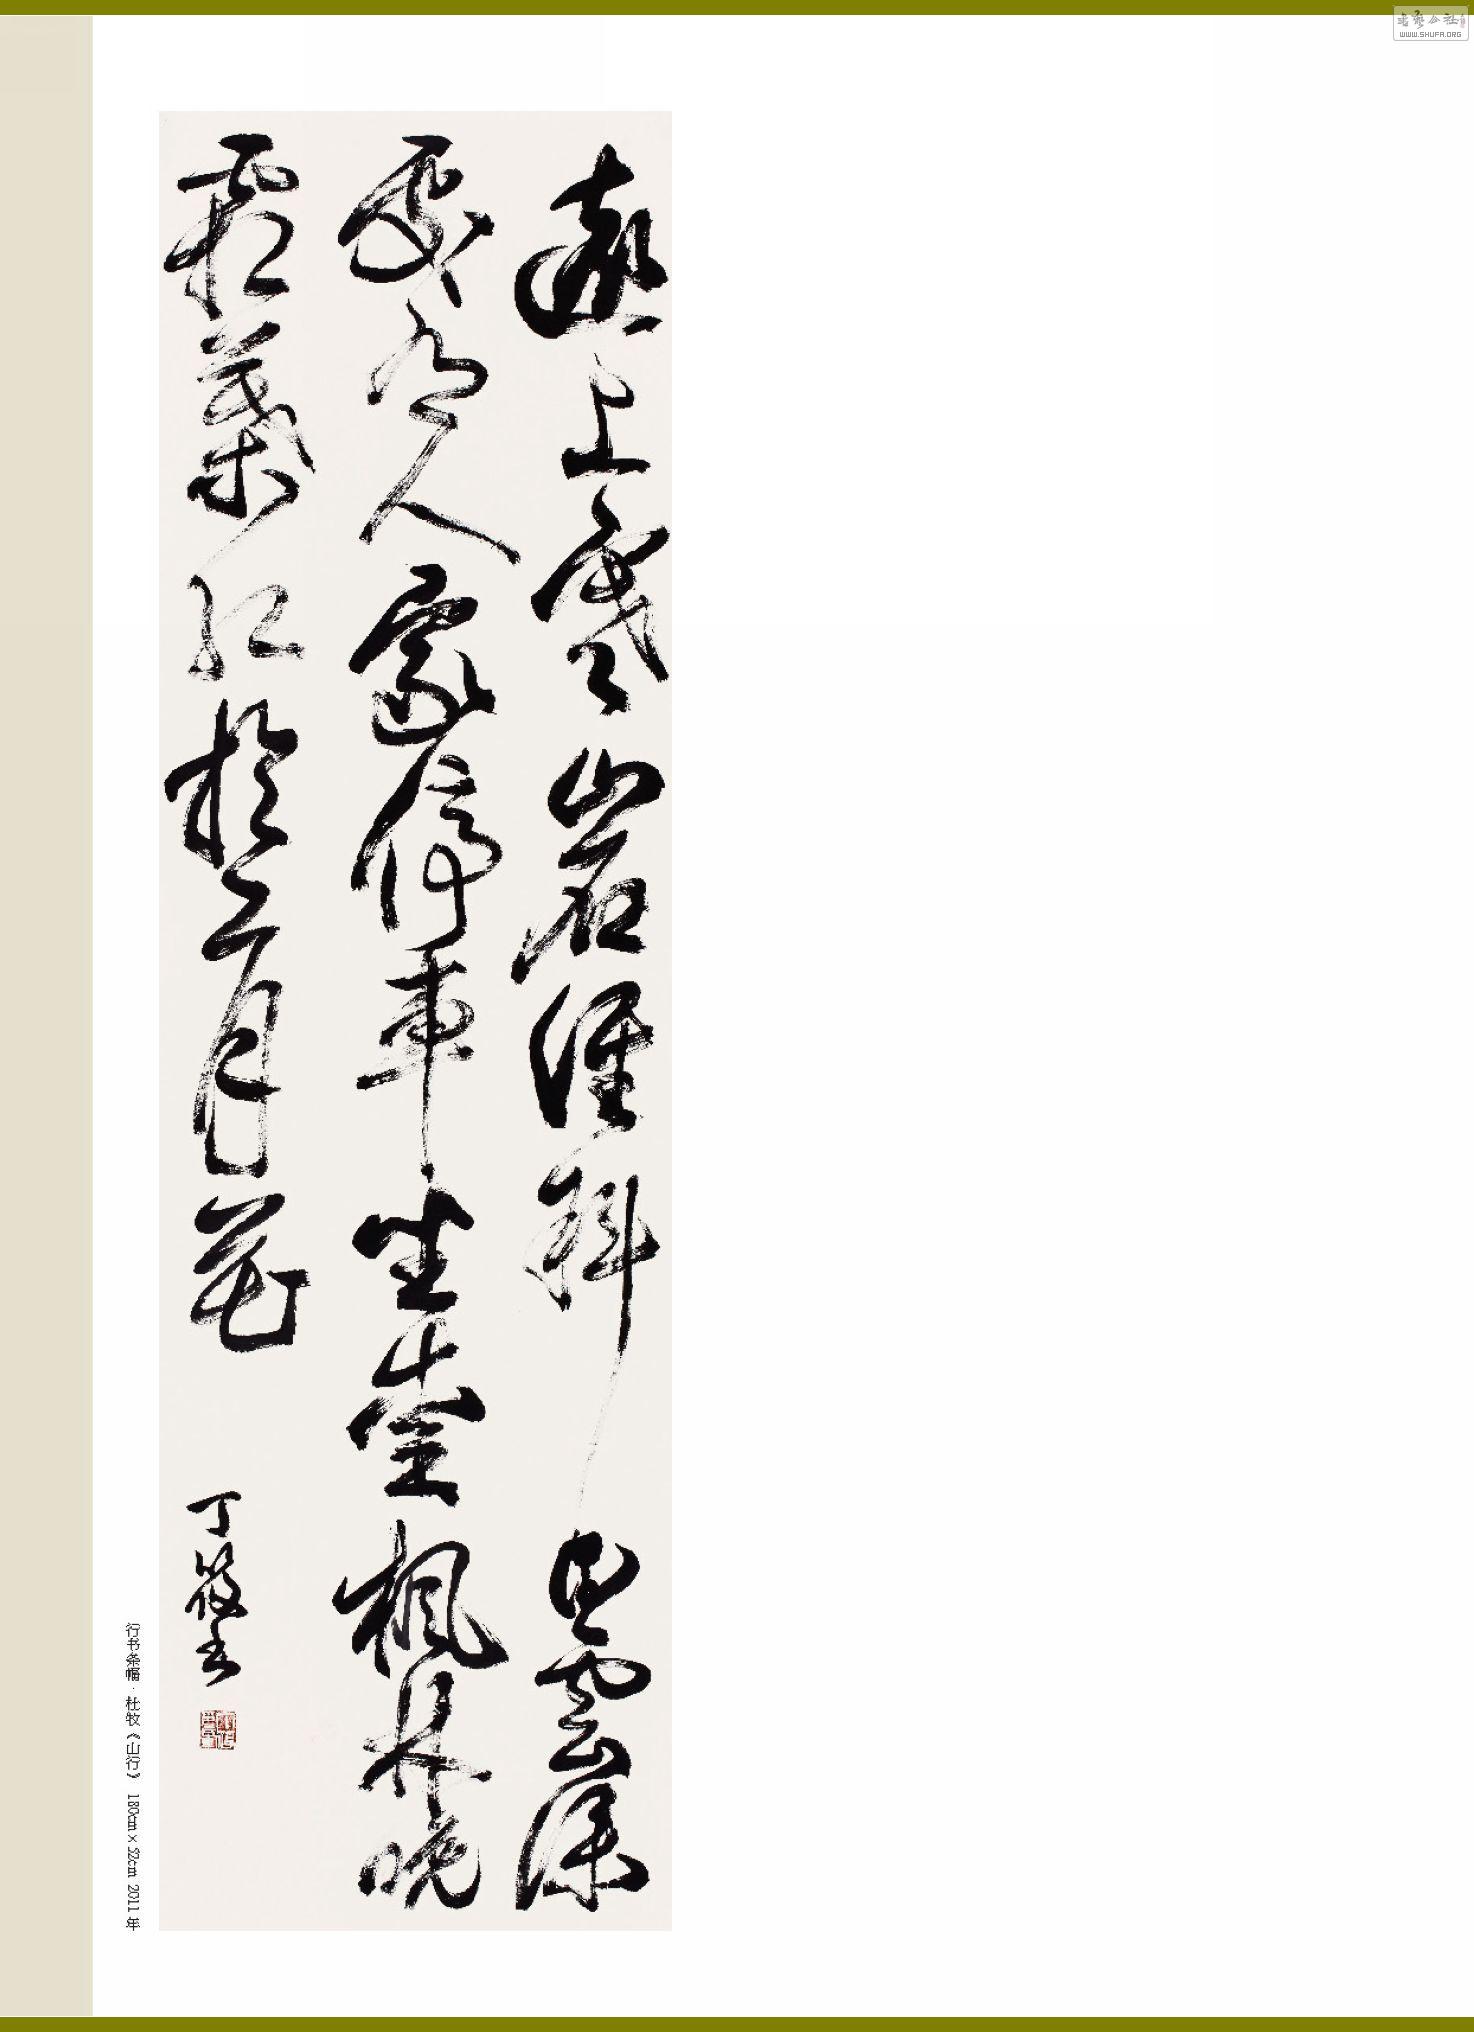 遠上寒山石徑斜白雲深
處有人家停車坐愛楓林晚
霜葉紅於二月花
丁筱
行书条幅·杜牧《山行》 180cm×52cm 2011年
书艺公社
WWW.SHUFA.ORG